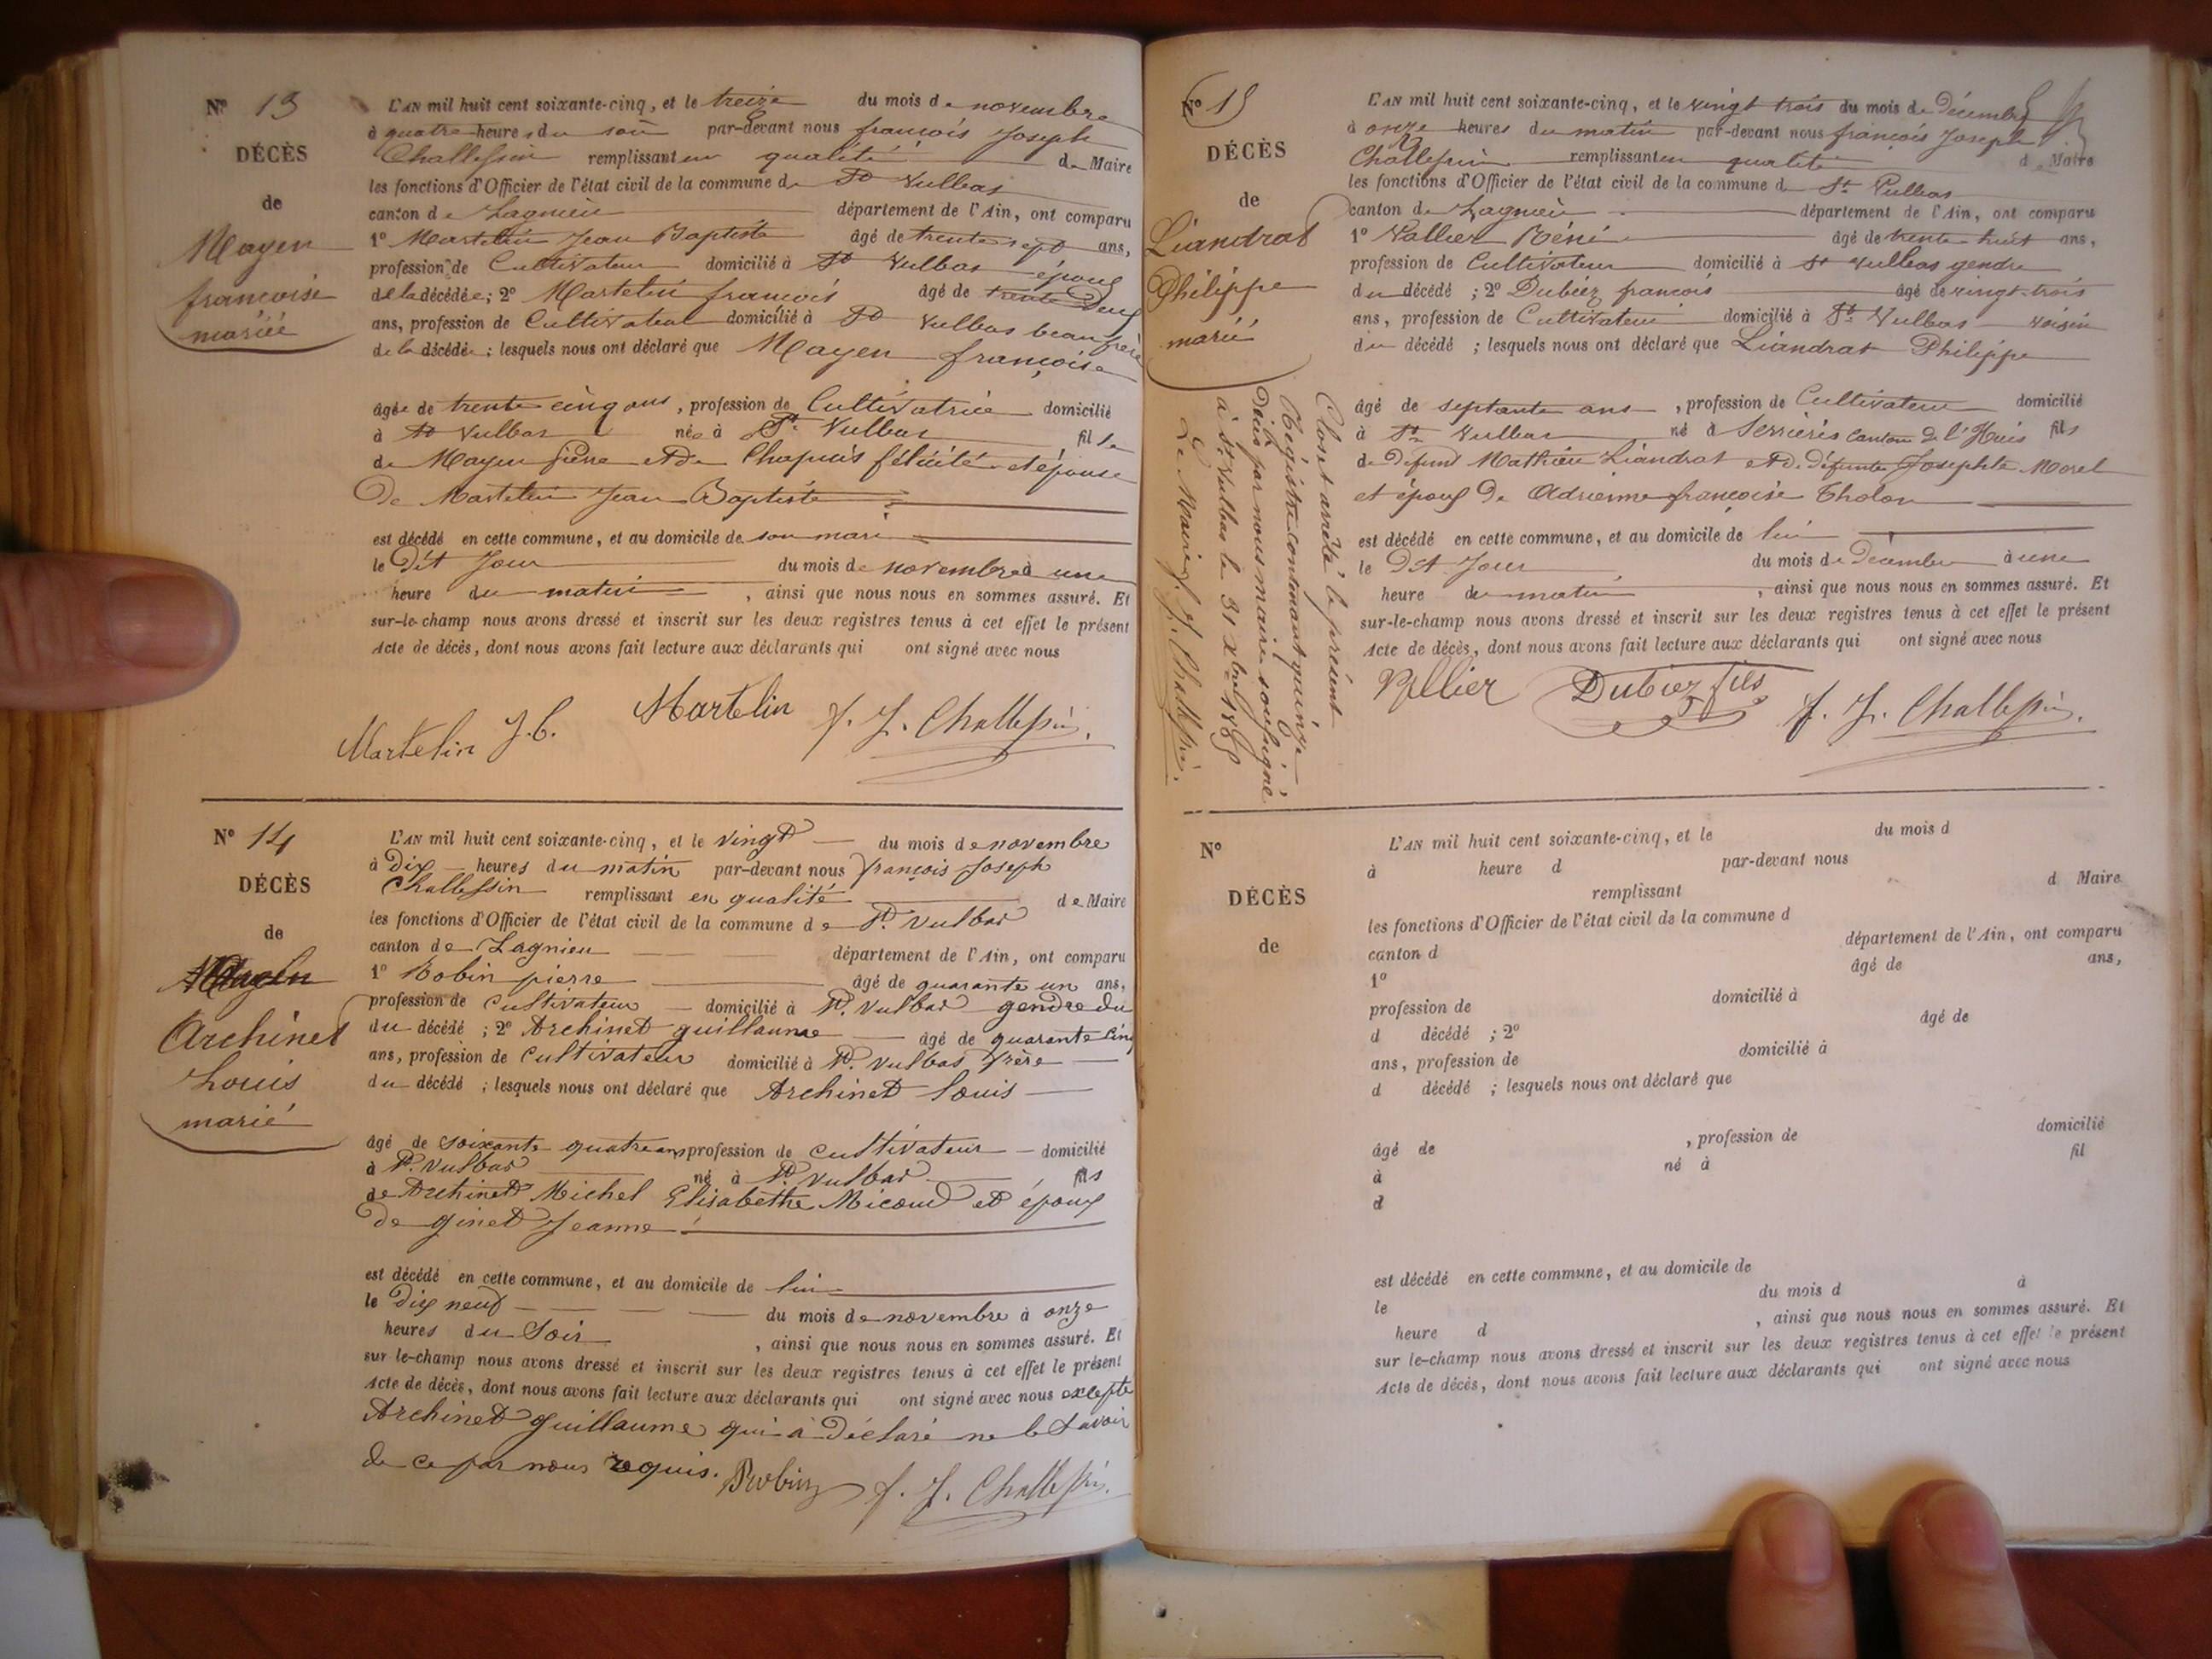 Nº 13
DÉCÈS
de
Mayen
francoise
mariée
L'AN mil huit cent soixante-cinq, et le treize du mois de novembre
à quatre heures du soir par-devant nous francois Joseph
Challessin remplissant en qualité de Maire
les fonctions d'Officier de l'état civil de la commune de St Vulbas
canton de Lagnieu département de l'Ain, ont comparu
1º Martelin Jean Baptiste âgé de trente sept ans,
profession de Cultivateur domicilié à St Vulbas époux
de la décédée; 2º Martelin francois âgé de trente Deux
ans, profession de Cultivateur domicilié à St Vulbas beau frère
de la décédée; lesquels nous ont déclaré que Mayen françoise
âgée de trente cinq ans, profession de Cultivatrice domicilié
à St Vulbas née à St Vulbas fille
de Mayen pierre et de Chapuis félicité et épouse
De Martelin Jean Baptiste
est décédé en cette commune, et au domicile de son mari
le Dit Jour du mois de novembre à une
heure du matin, ainsi que nous nous en sommes assuré. Et
sur-le-champ nous avons dressé et inscrit sur les deux registres tenus à cet effet le présent
Acte de décès, dont nous avons fait lecture aux déclarants qui ont signé avec nous
Martelin J.B. Martelin f. J. Challessin.
Nº 14
DÉCÈS
de
Archinet
Louis
marié
L'AN mil huit cent soixante-cinq, et le vingt du mois de novembre
à Dix heures du matin par-devant nous françois Joseph
Challessin remplissant en qualité de Maire
les fonctions d'Officier de l'état civil de la commune de St. Vulbas
canton de Lagnieu département de l'Ain, ont comparu
1º Robin pierre âgé de quarante un ans,
profession de Cultivateur domicilié à St. Vulbas gendre du
du décédé; 2º Archinet guillaume âgé de quarante cinq
ans, profession de Cultivateur domicilié à St. Vulbas frère
du décédé; lesquels nous ont déclaré que Archinet Louis
âgé de soixante quatre ans profession de Cultivateur domicilié
à St. Vulbas né à St. Vulbas fils
de Archinet Michel Elisabethe Micoud et époux
De ginet Jeanne
est décédé en cette commune, et au domicile de lui
le Dix neuf du mois de novembre à onze
heures du Soir, ainsi que nous nous en sommes assuré. Et
sur le-champ nous avons dressé et inscrit sur les deux registres tenus à cet effet le présent
Acte de décès, dont nous avons fait lecture aux déclarants qui ont signé avec nous excepté
Archinet guillaume qui à Déclaré ne le Savoir
de ce par nous requis. Robin f. J. Challessin.
Nº 15
DÉCÈS
de
Liandrat
Philippe
marié
Clos et arrêté le présent
Registre contenant quinze
Décès par nous maire soussigné
à St Vulbas le 31 Xbre 1865
Le Maire, f. J. Challessin.
L'AN mil huit cent soixante-cinq, et le vingt trois du mois de Décembre
à onze heures du matin par-devant nous francois Joseph
Challessin remplissant en qualité de Maire
les fonctions d'Officier de l'état civil de la commune de St Vulbas
canton de Lagnieu département de l'Ain, ont comparu
1º Vallier Réné âgé de trente huit ans,
profession de Cultivateur domicilié à St Vulbas gendre
du décédé; 2º Dubiez francois âgé de vingt-trois
ans, profession de Cultivateur domicilié à St Vulbas voisin
du décédé; lesquels nous ont déclaré que Liandrat Philippe
âgé de septante ans, profession de Cultivateur domicilié
à St Vulbas né à Serrières canton de l'Huis fils
de Défunt Mathieu Liandrat et de défunte Josephte Morel
et époux De Adrienne françoise Tholon
est décédé en cette commune, et au domicile de lui
le Dit Jour du mois de Décembre à une
heure du matin, ainsi que nous nous en sommes assuré. Et
sur-le-champ nous avons dressé et inscrit sur les deux registres tenus à cet effet le présent
Acte de décès, dont nous avons fait lecture aux déclarants qui ont signé avec nous
Vallier Dubiez fils f. J. Challessin.
Nº
DÉCÈS
de
L'AN mil huit cent soixante-cinq, et le du mois d
à heure d par-devant nous
remplissant d Maire
les fonctions d'Officier de l'état civil de la commune d
canton d département de l'Ain, ont comparu
1º âgé de ans,
profession de domicilié à
d décédé; 2º âgé de
ans, profession de domicilié à
d décédé; lesquels nous ont déclaré que
âgé de, profession de domicilié
à né à fil
d
est décédé en cette commune, et au domicile de
le du mois d à
heure d, ainsi que nous nous en sommes assuré. Et
sur le-champ nous avons dressé et inscrit sur les deux registres tenus à cet effet le présent
Acte de décès, dont nous avons fait lecture aux déclarants qui ont signé avec nous